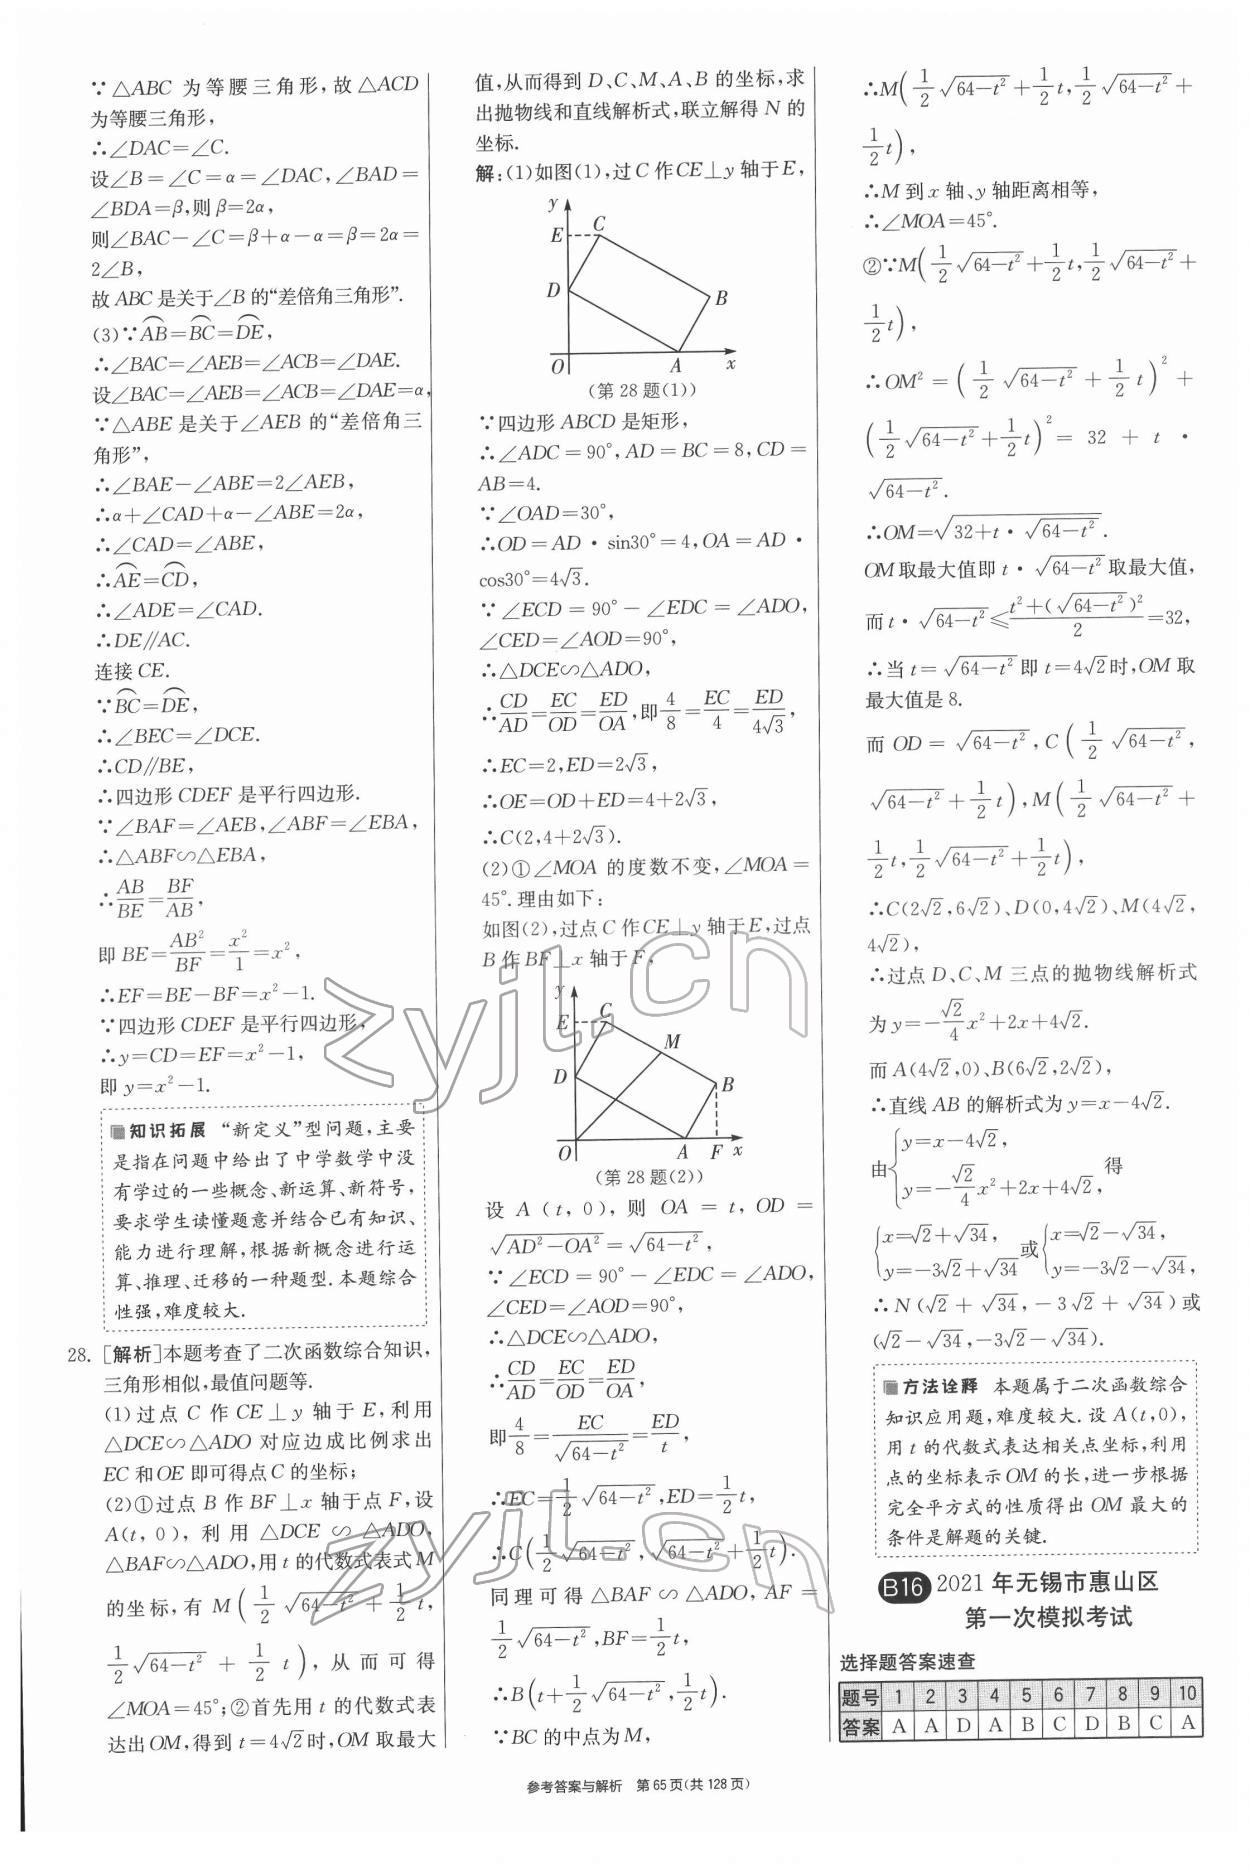 ∵△ABC 为等腰三角形,故△ACD
为等腰三角形,
∴∠DAC=∠C.
设∠B=∠C=α=∠DAC,∠BAD=
∠BDA=β,则β=2α,
则∠BAC-∠C=β+α-α=β=2α=
2∠B,
故ABC是关于∠B的“差倍角三角形”.
(3)∵⌒AB=⌒BC=⌒DE,
∴∠BAC=∠AEB=∠ACB=∠DAE.
设∠BAC=∠AEB=∠ACB=∠DAE=α,
∵△ABE是关于∠AEB的“差倍角三
角形”,
∴∠BAE-∠ABE=2∠AEB,
∴α+∠CAD+α-∠ABE=2α,
∴∠CAD=∠ABE,
∴⌒AE=⌒CD,
∴∠ADE=∠CAD.
∴DE∥AC.
连接CE.
∵⌒BC=⌒DE,
∴∠BEC=∠DCE.
∴CD∥BE,
∴四边形CDEF是平行四边形.
∵∠BAF=∠AEB,∠ABF=∠EBA,
∴△ABF∽△EBA,
∴AB/BE=BF/AB,
即BE=AB²/BF=x²/1=x²,
∴EF=BE-BF=x²-1.
∵四边形CDEF是平行四边形,
∴y=CD=EF=x²-1,
即y=x²-1.
知识拓展 “新定义”型问题,主要
是指在问题中给出了中学数学中没
有学过的一些概念、新运算、新符号,
要求学生读懂题意并结合已有知识、
能力进行理解,根据新概念进行运
算、推理、迁移的一种题型.本题综合
性强,难度较大.
28.[解析]本题考查了二次函数综合知识,
三角形相似,最值问题等.
(1)过点C作CE⊥y轴于E,利用
△DCE∽△ADO对应边成比例求出
EC和OE即可得点C的坐标;
(2)①过点B作BF⊥x轴于点F,设
A(t,0),利用△DCE∽△ADO,
△BAF∽△ADO,用t的代数式表式M
的坐标,有M(1/2√(64-t²)+1/2t,
1/2√(64-t²)+1/2t),从而可得
∠MOA=45°;②首先用t的代数式表
达出OM,得到t=4√2时,OM取最大
值,从而得到D、C、M、A、B的坐标,求
出抛物线和直线解析式,联立解得N的
坐标.
解:(1)如图(1),过C作CE⊥y轴于E,
y
E C
D B
O A x
(第28题(1))
∵四边形ABCD是矩形,
∴∠ADC=90°,AD=BC=8,CD=
AB=4.
∵∠OAD=30°,
∴OD=AD·sin30°=4,OA=AD·
cos30°=4√3.
∵∠ECD=90°-∠EDC=∠ADO,
∠CED=∠AOD=90°,
∴△DCE∽△ADO,
∴CD/AD=EC/OD=ED/OA,即4/8=EC/4=ED/4√3,
∴EC=2,ED=2√3,
∴OE=OD+ED=4+2√3,
∴C(2,4+2√3).
(2)①∠MOA的度数不变,∠MOA=
45°.理由如下:
如图(2),过点C作CE⊥y轴于E,过点
B作BF⊥x轴于F,
y
E C
M
D B
O A F x
(第28题(2))
设A(t,0),则OA=t,OD=
√(AD²-OA²)=√(64-t²),
∵∠ECD=90°-∠EDC=∠ADO,
∠CED=∠AOD=90°,
∴△DCE∽△ADO,
∴CD/AD=EC/OD=ED/OA,
即4/8=EC/√(64-t²)=ED/t,
∴EC=1/2√(64-t²),ED=1/2t,
∴C(1/2√(64-t²),√(64-t²)+1/2t).
同理可得△BAF∽△ADO,AF=
1/2√(64-t²),BF=1/2t,
∴B(t+1/2√(64-t²),1/2t).
∵BC的中点为M,
∴M(1/2√(64-t²)+1/2t,1/2√(64-t²)+
1/2t),
∴M到x轴、y轴距离相等,
∴∠MOA=45°.
②∵M(1/2√(64-t²)+1/2t,1/2√(64-t²)+
1/2t),
∴OM²=(1/2√(64-t²)+1/2t)²+
(1/2√(64-t²)+1/2t)²=32+t·
√(64-t²).
∴OM=√(32+t·√(64-t²)).
OM取最大值即t·√(64-t²)取最大值,
而t·√(64-t²)≤(t²+(√(64-t²))²)/2=32,
∴当t=√(64-t²)即t=4√2时,OM取
最大值是8.
而OD=√(64-t²),C(1/2√(64-t²),
√(64-t²)+1/2t),M(1/2√(64-t²)+
1/2t,1/2√(64-t²)+1/2t),
∴C(2√2,6√2)、D(0,4√2)、M(4√2,
4√2),
∴过点D、C、M三点的抛物线解析式
为y=-√2/4x²+2x+4√2.
而A(4√2,0)、B(6√2,2√2),
∴直线AB的解析式为y=x-4√2.
由{y=x-4√2, y=-√2/4x²+2x+4√2,得
{x=√2+√34, y=-3√2+√34或{x=√2-√34, y=-3√2-√34,
∴N(√2+√34,-3√2+√34)或
(√2-√34,-3√2-√34).
方法诠释 本题属于二次函数综合
知识应用题,难度较大.设A(t,0),
用t的代数式表达相关点坐标,利用
点的坐标表示OM的长,进一步根据
完全平方式的性质得出OM最大的
条件是解题的关键.
B16 2021年无锡市惠山区
第一次模拟考试
选择题答案速查
题号 1 2 3 4 5 6 7 8 9 10
答案 A A D A B C D B C A
参考答案与解析 第65页(共128页)
zyjl.cn
zyjl.cn